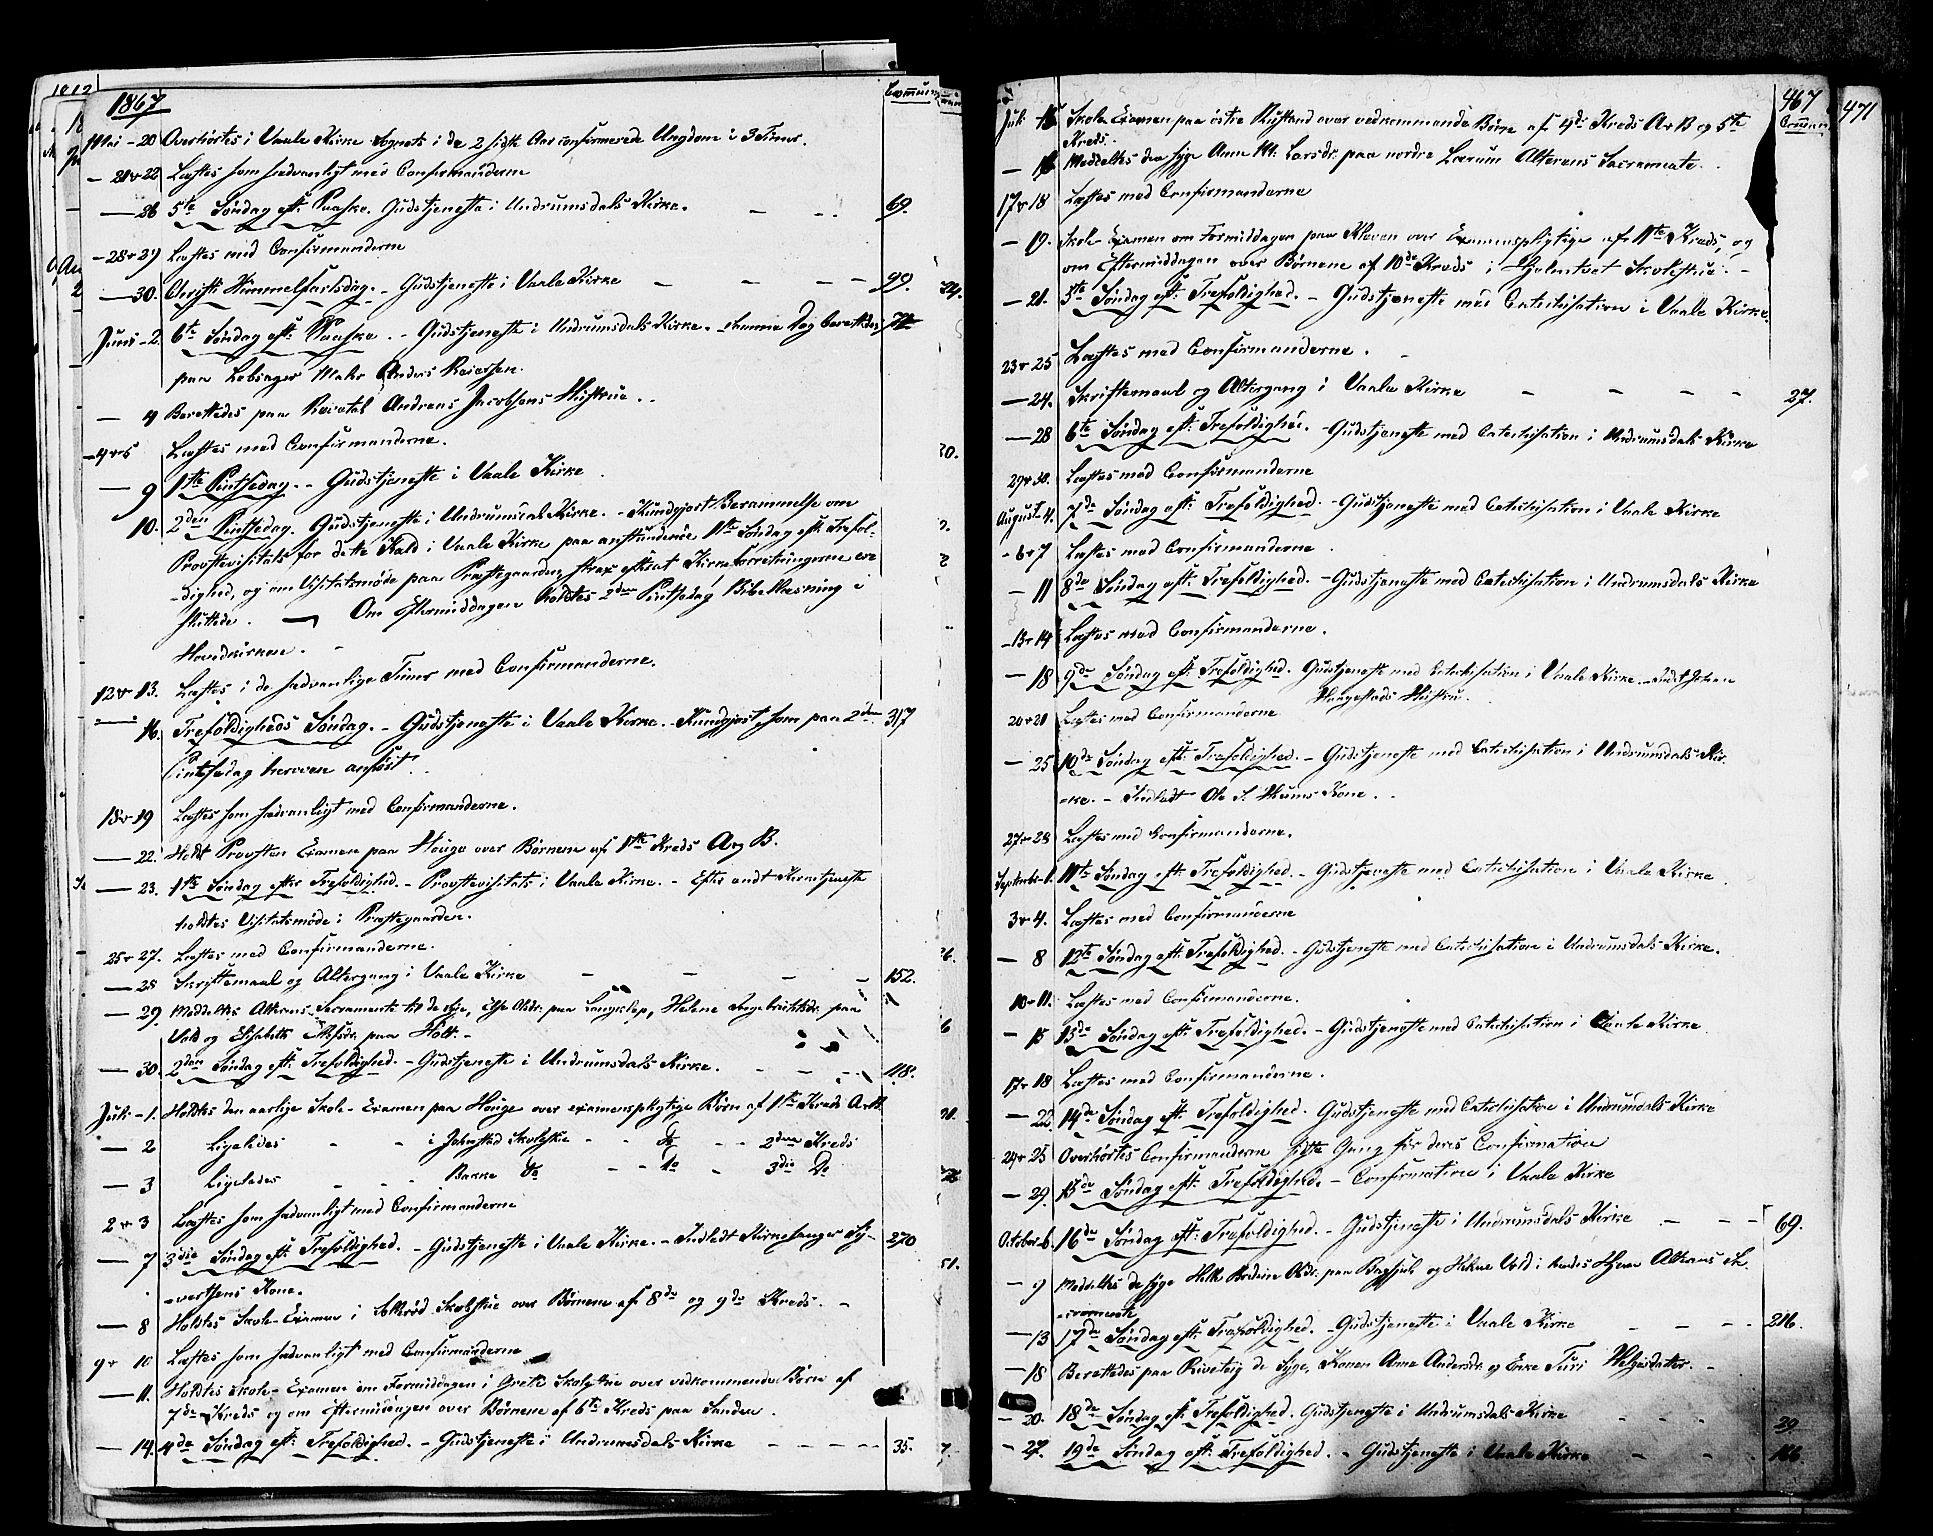 1867
Commun.
Mai - 20 Overhørtes i Vaale Kirke Sognets i de 2 sidste Aar confirmerede Ungdom i 3 Timer.
- 21 & 22 Læstes som sædvanligt med Confirmanderne
- 26 5te Søndag eft. Paaske. Gudstjeneste i Undrumsdals Kirke. 69.
- 28 & 29 Læstes med Confirmanderne
- 30. Christi Himmelfartsdag. - Gudstjeneste i Vaale Kirke 99.
Juni - 2. 6te Søndag eft: Paaske. - Gudstjeneste i Undrumsdals Kirke. - samme Dag berettedes
paa Anders
- 4 Berettedes paa Andreas Jacobsens Hustrue.
- 4 & 5 Læstes med Confirmanderne.
- 9 1ste Pintsedag. - Gudstjeneste i Vaale Kirke
10. 2den Pintsedag. Gudstjeneste i Undrumsdals Kirke. - Kundgjort Berammelse om
Provstevisitats for dette Kald i Vaale Kirke paa anstundende 1ste Søndag eft. Trefol-
-dighed, og om Visitatsmøde paa Præstegaarden strax efterat Kirkeforretningerne ere
sluttede. - Om Eftermiddagen holdtes 2den Pintsedag Bibellæsning i
Hovedkirken.
12 & 13. Læstes i de sædvanlige Timer med Confirmanderne.
- 16. Trefoldigheds Søndag. - Gudstjeneste i Vaale Kirke. - Kundgjort, som paa 2den 317
Pintsedag herover anført.
18 & 19 Læstes som sædvanligt med Confirmanderne.
- 22. Holdt Provsten Examen paa Houge over Børnene af 1ste Kreds A og B.
- 23. 1ste Søndag efter Trefoldighed. - Provstevisitats i Vaale Kirke. - Efter endt Kirketjeneste
holdtes Visitatsmøde i Præstegaarden.
25 & 27. Læstes med Confirmanderne.
- 28 Skriftemaal og Altergang i Vaale Kirke 152.
- 29. Meddeltes Alterens Sacramente til de syge, Else paa Helene paa
Vold og Elisabeth paa Holt.
- 30. 2den Søndag eft. Trefoldighed. - Gudstjeneste i Undrumsdals Kirke. 118.
Juli - 1. Holdtes den aarlige Skole-Examen paa Houge over examenspligtige Børn af 1ste Kreds A & B.
- 2 Ligeledes i Skolestue do 2den Kreds
- 3 Ligeledes Bakke do do 3die do
2 & 3 Læstes som sædvanligt med Confirmanderne
- 7 3die Søndag eft. Trefoldighed. - Gudstjeneste i Vaale Kirke. - Indledt Kirkesanger Sy- 270
-vertsens Kone.
- 8 Holdtes Skole-Examen i Skolestue over Børnene af 8de og 9de Kreds.
9 & 10 Læstes som sædvanligt med Confirmanderne
- 11. Holdtes Skole-Examen om Formiddagen i Skolestue over vedkommende Børn af
7de Kreds og om Eftermiddagen over Børnene af 6te Kreds paa Sanden.
- 14. 4de Søndag eft. Trefoldighed. - Gudstjeneste i Undrumsdals Kirke 35.
467
Commun.
Juli 15 Skole Examen paa østre over vedkommende Børn af 4de Kreds A & B og 5te
Kreds.
- 16 Meddeltes den syge Anne Larsdr. paa nordre Alterens Sacramente.
17 & 18 Læstes med Confirmanderne
- 19. Skole Examen om Formiddagen paa Kleven over Examenspligtige af 11te Kreds og
om Eftermiddagen over Børnene af 10de Kreds i Skolestue.
- 21. 5te Søndag eft. Trefoldighed. - Gudstjeneste med Catechisation i Vaale Kirke.
23 & 25 Læstes med Confirmanderne.
- 24. Skriftemaal og Altergang i Vaale Kirke 27.
- 28 6te Søndag eft. Trefoldighed. - Gudstjeneste med Catechisation i Undrumsdals Kirke
29 & 30. Læstes med Confirmanderne
August - 4. 7de Søndag eft. Trefoldighed. - Gudstjeneste med Catechisation i Vaale Kirke
- 6 & 7 Læstes med Confirmanderne
- 11 8de Søndag eft. Trefoldighed. - Gudstjeneste med Catechisation i Undrumsdals Kirke
- 13 & 14 Læstes med Confirmanderne.
- 18 9de Søndag eft. Trefoldighed. Gudstjeneste med Catechisation i Vaale Kirke. - Indledt
Haugestads Hustru.
20 & 21 Læstes med Confirmanderne
- 25 10de Søndag eft. Trefoldighed. - Gudstjeneste med Catechisation i Undrumsdals Kir-
-ke. - Indledt Ole S. Kone.
27 & 28 Læstes med Confirmanderne.
September - 1. 11te Søndag eft. Trefoldighed. - Gudstjeneste med Catechisation i Vaale Kirke
3 & 4. Læstes med Confirmanderne
- 8 12te Søndag eft. Trefoldighed. - Gudstjeneste med Catechisation i Undrumsdals Kirke.
10 & 11. Læstes med Confirmanderne.
- 15 13de Søndag eft. Trefoldighed. - Gudstjeneste med Catechisation i Vaale Kirke.
17 & 18 Læstes med Confirmanderne.
- 22. 14de Søndag eft. Trefoldighed. Gudstjeneste med Catechisation i Undrumsdals Kirke
24 & 25 Overhørtes Confirmanderne sidste Gang før deres Confirmation
- 29. 15de Søndag eft. Trefoldighed. - Confirmation i Vaale Kirke
October - 6. 16de Søndag eft. Trefoldighed. - Gudstjeneste i Undrumsdals Kirke 69.
- 9 Meddeltes de syge Olsdr. paa og Vold i deres Hjem Alterens Sa-
-cramente
- 13 17de Søndag eft. Trefoldighed. - Gudstjeneste i Vaale Kirke 216.
- 18 Berettedes paa de syge, Konen Anne Andersdr. og Enke Helgesdatter.
- 20. 18de Søndag eft. Trefoldighed. Gudstjeneste i Undrumsdals Kirke 39.
- 27. 19de Søndag eft. Trefoldighed. - Gudstjeneste i Vaale Kirke 166.
471